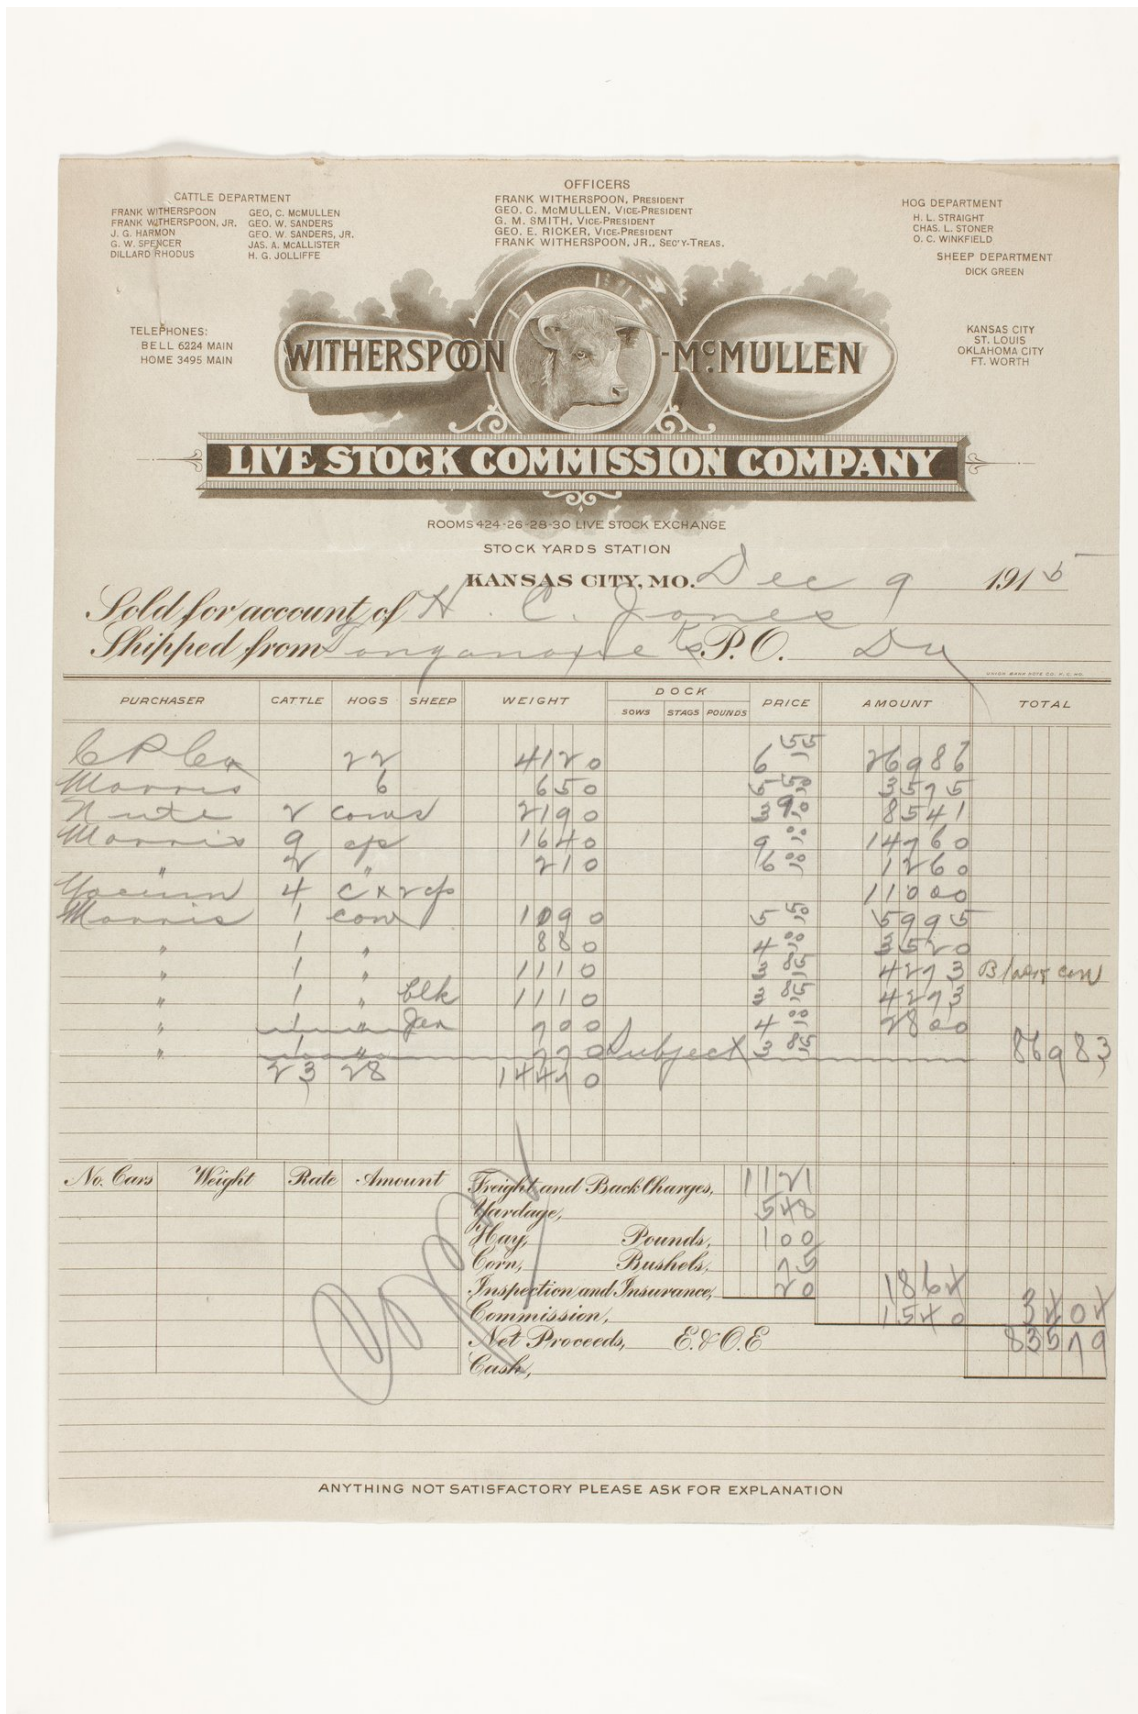 CATTLE DEPARTMENT
FRANK WITHERSPOON GEO. C. McMULLEN
FRANK WITHERSPOON, JR. GEO. W. SANDERS
J. G. HARMON GEO. W. SANDERS, JR.
G. W. SPENCER JAS. A. McALLISTER
DILLARD RHODUS H. G. JOLLIFFE
OFFICERS
FRANK WITHERSPOON, PRESIDENT
GEO. C. McMULLEN, VICE-PRESIDENT
G. M. SMITH, VICE-PRESIDENT
GEO. E. RICKER, VICE-PRESIDENT
FRANK WITHERSPOON, JR., SEC'Y-TREAS.
HOG DEPARTMENT
H. L. STRAIGHT
CHAS. L. STONER
O. C. WINKFIELD
SHEEP DEPARTMENT
DICK GREEN
TELEPHONES:
BELL 6224 MAIN
HOME 3495 MAIN
KANSAS CITY
ST. LOUIS
OKLAHOMA CITY
FT. WORTH
WITHERSPOON-McMULLEN
LIVE STOCK COMMISSION COMPANY
ROOMS 424-26-28-30 LIVE STOCK EXCHANGE
STOCK YARDS STATION
KANSAS CITY, MO. Dec 9 1915
Sold for account of H. C. Jones
Shipped from Tonganoxie Ks P.O. Du
UNION BANK NOTE CO. K.C. MO.
PURCHASER CATTLE HOGS SHEEP WEIGHT DOCK PRICE AMOUNT TOTAL
SOWS STAGS POUNDS
C P Co 22 4120 6 55 269 86
Morris 6 650 5 50 35 75
Nute 2 cows 2190 3 90 85 41
Morris 9 cfs 1640 9 00 147 60
" 2 " 210 6 00 12 60
Yocum 4 c x 2 cfs 110 00
Morris 1 cow 1090 5 50 59 95
" 1 " 880 4 00 35 20
" 1 " 1110 3 85 42 73 Black cow
" 1 " blk 1110 3 85 42 73
" 1 " Jer 700 4 00 28 00
" 1 " 770 Subject 3 85 869 83
23 28 14470
No. Cars Weight Rate Amount
Freight and Back Charges, 11 21
Yardage, 5 48
Hay, Pounds, 1 00
Corn, Bushels, 75
Inspection and Insurance, 20 18 64
Commission, 15 40 34 04
Net Proceeds, E. & O. E 835 79
Cash,
ANYTHING NOT SATISFACTORY PLEASE ASK FOR EXPLANATION